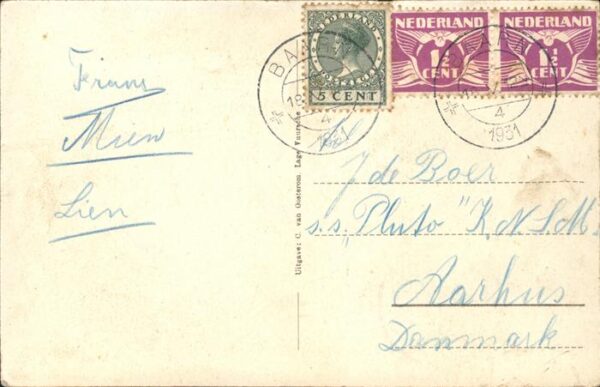 Frans
Mien
Lien
NEDERLAND
5 CENT
NEDERLAND
1½
CENT
NEDERLAND
1½
CENT
4
1931
4
1931
Uitgave: C. van Oosterom, Lage Vuursche
J de Boer
s.s. "Pluto" K.N.S.M.
Aarhus
Danmark